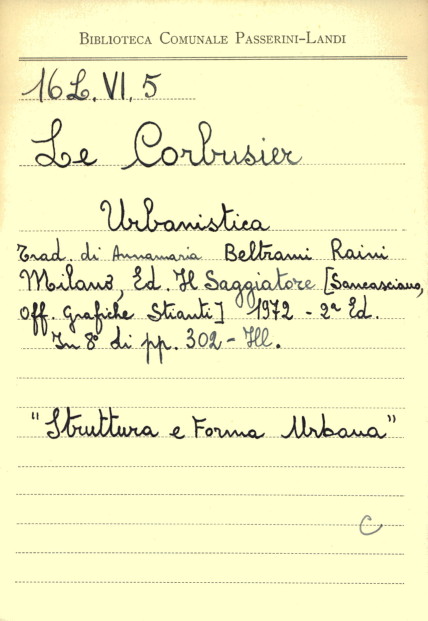 BIBLIOTECA COMUNALE PASSERINI-LANDI
16 L. VI. 5
Le Corbusier
Urbanistica
Trad. di Annamaria Beltrami Raini
Milano, Ed. Il Saggiatore [Sancasciano,
Off. Grafiche Stianti] 1972 - 2ª Ed.
In 8° di pp. 302 - Ill.
"Struttura e Forma Urbana"
C